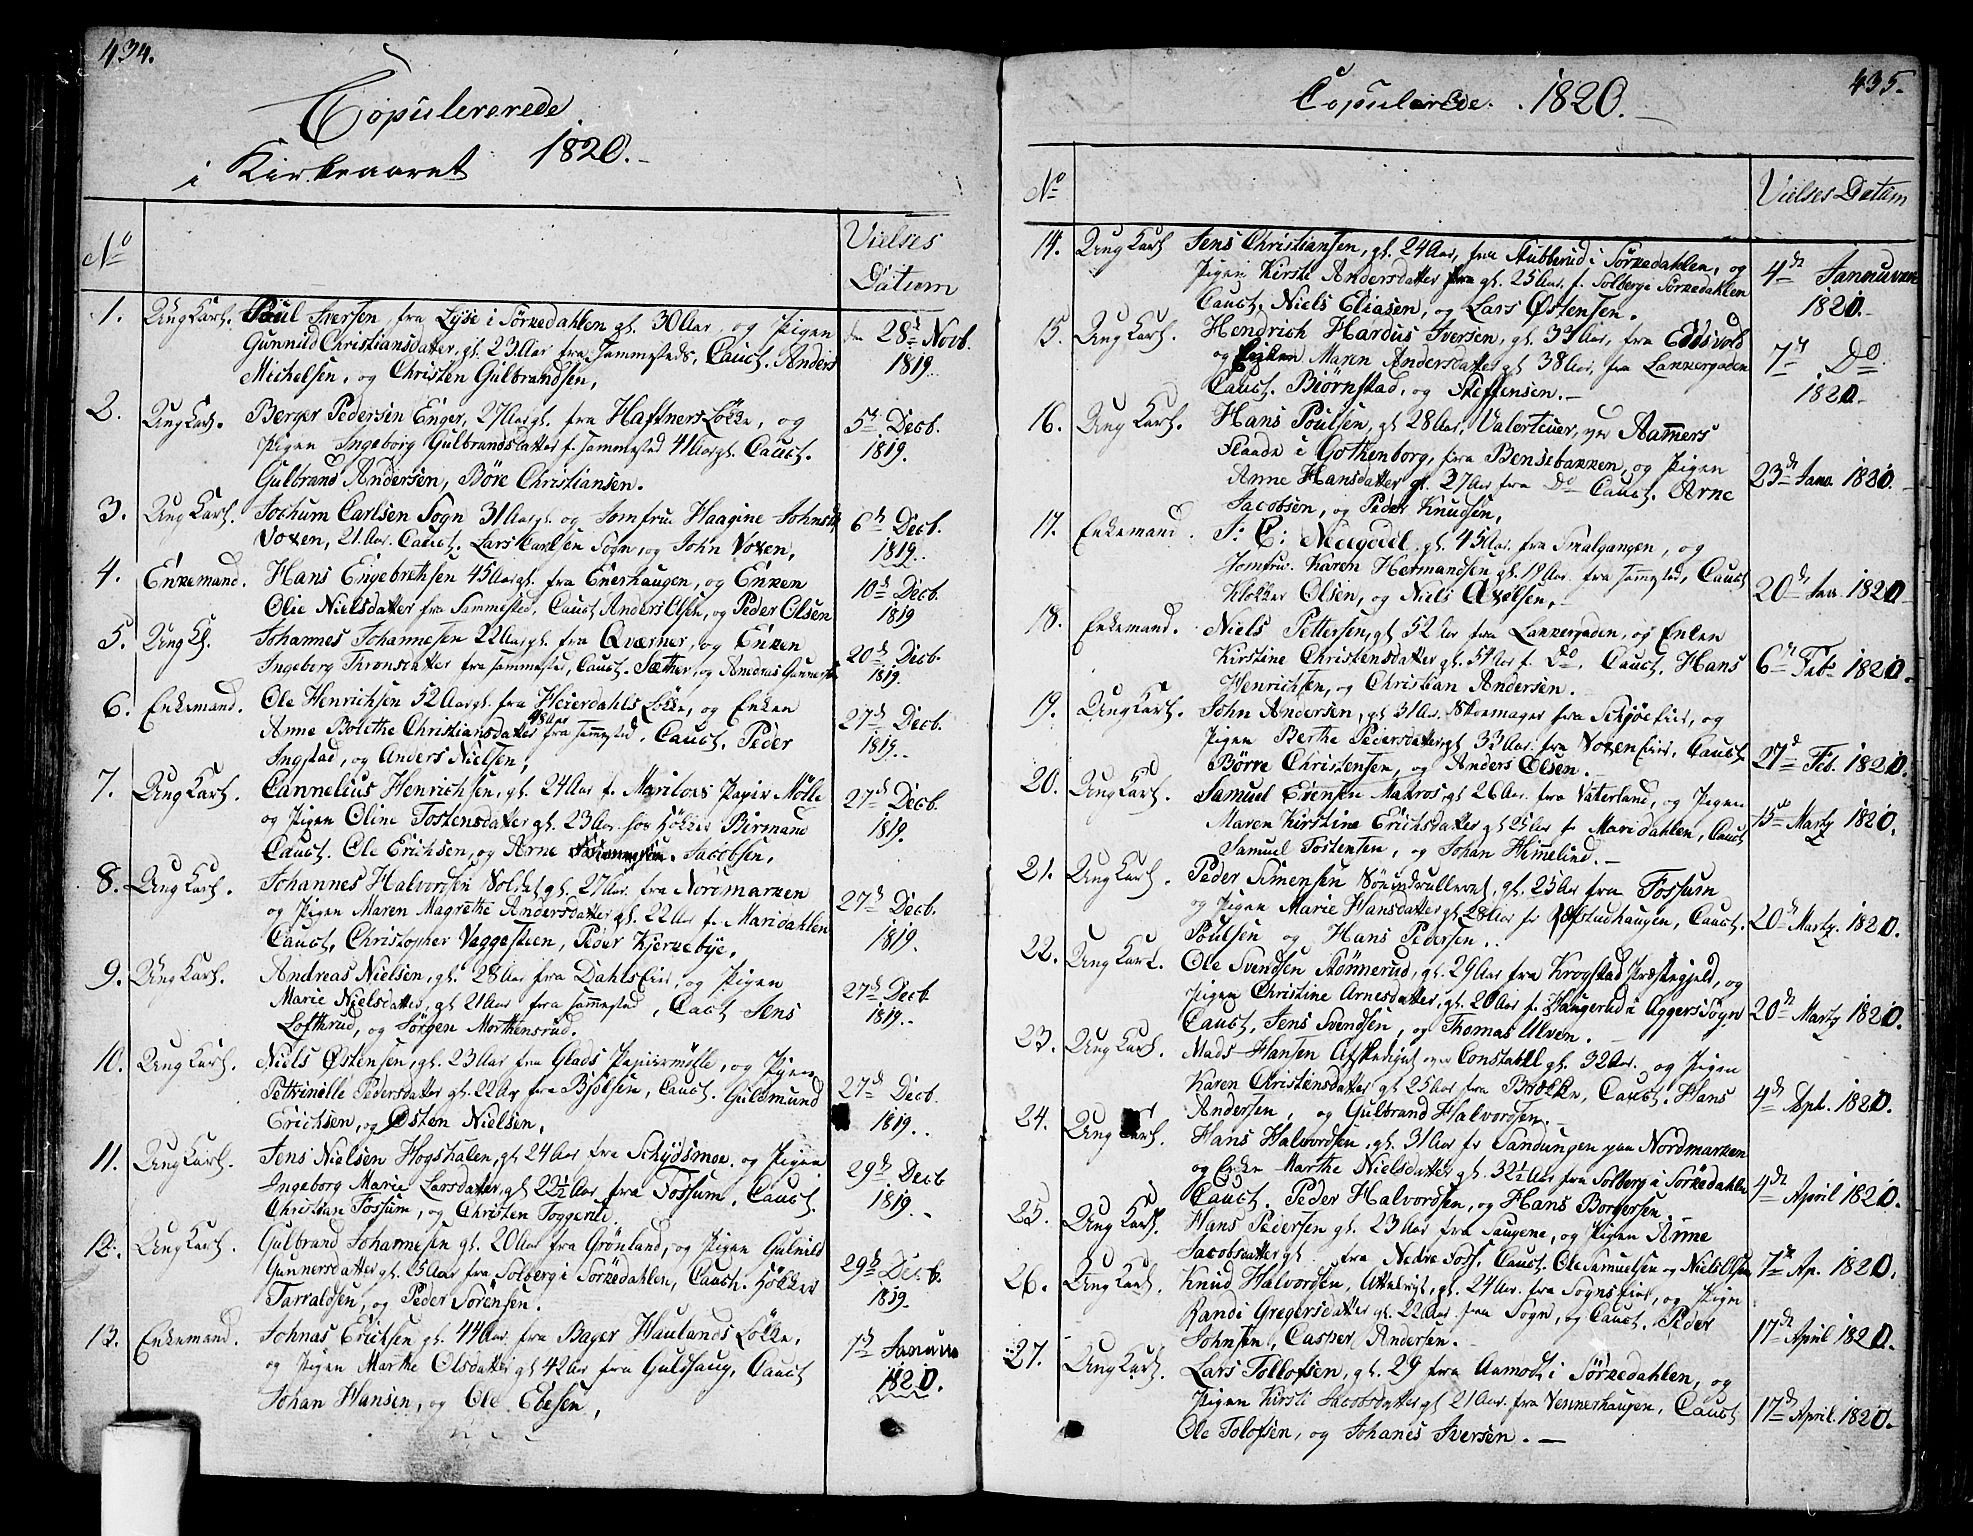 434.
Copulererede
i Kirkeaaret 1820.
No
Vielses
Datum
1. Ung Karl. Poul Iversen, fra Lyse i Sørkedahlen gl. 30 Aar, og Pigen
Gunnild Christiansdatter, gl. 23 Aar fra Sammesteds, Cauct. Anders
Michelsen, og Christen Gulbrandsen,
28d Novb.
1819.
2. Ung Karl. Berger Pedersen Enger, 27 Aar gl. fra Haftners Løkke, og
Pigen Ingeborg Gulbrandsdatter f. Sammested 41 Aar gl. Cauct.
Gulbrand Andersen, Børe Christiansen.
5d Decb.
1819.
3. Ung Karl. Jochum Carlsen Sogn 31 Aar gl. og Jomfru Haagine Johnsd
Voxen, 21 Aar. Cauct. Lars Carlsen Sogn, og John Voxen,
6d Decb.
1819.
4. Enkemand. Hans Engebrethsen 45 Aar gl. fra Enerhaugen, og Enken
Olie Nielsdatter fra Sammested, Cauct Anders Olsen, og Peder Olsen
10d Decb.
1819
5. Ung Kl. Johannes Johannesen 22 Aar gl. fra Qværner, og Enken
Ingeborg Thronsdatter fra Sammested, Cauct. Sæther, og
20d Decb.
1819.
6. Enkemand. Ole Henrichsen 52 Aar gl. fra Heierdahls Løkke, og Enken
Anne Bolethe Christiansdatter 48 Aar fra Sammested, Cauct. Peder
Ingstad, og Anders Nielsen,
27d Decb.
1819.
7. Ung Karl. Cannelius Henrichsen, gl. 24 Aar f. Maritors Papir Mølle
og Pigen Oline Tostensdatter gl. 23 Aar. hos Birmand
Cauct. Ole Erichsen, og Arne Jacobsen,
27d Decb.
1819.
8. Ung Karl. Johannes Halvordsen Voldet gl. 27 Aar. fra Nordmarken
og Pigen Maren Magrethe Andersdatter gl. 22 Aar f. Maridahlen
Cauct. Christopher Vaggesteen, Peder Kjernebye,
27d Decb.
1819.
9. Ung Karl. Andreas Nielsen, gl. 28 Aar fra Dahls Eie, og Pigen
Marie Nielsdatter, gl 21 Aar fra Sammested, Cact Jens
Lofthrud, og Jørgen Morthensrud.
27d Decb
1819.
10. Ung Karl. Niels Østensen, gl. 23 Aar fra Glads Papiirmølle, og Pigen
Pettrinelle Pedersdatter gl. 22 Ar fra Bjølsen, Cauct. Guldmund
Erichsen, og Østen Nielsen,
27d Decb.
1819.
11. Ung Karl. Jens Nielsen Hogshalen, gl. 24 Aar fra Schydsmoe, og Pigen
Ingeborg Marie Larsdatter, gl 22½ Aar, fra Fossum, Cauct.
Christian Fossum, og Christen Toggerud.
29d Decb
1819.
12. Ung Karl. Gulbrand Johannesen gl. 20 Aar fra Grønland, og Pigen Gulnild
Gunnersdatter gl. 25 Aar fra Solberg i Sørkedahlen, Cauct.
Tarraldsen, og Peder Sørensen.
29d Decb.
1819.
13. Enkemand. Johnas Erichsen gl. 44 Aar. fra Bager Haulands Løkke,
og Pigen Marthe Olsdatter gl 42 Aar fra Guldhaug, Cauct
Johan Hansen, og Ole Ebesen,
1d Januar
1820.
435.
Copulerede. 1820.
No
Vielses Datum
14. Ung Karl Jens Christiansen, gl. 24 Aar, fra Stubberud i Sørkedahlen, og
Pigen Kirsti Andersdatter gl. 25 Aar f. Solberg i Sørkedahlen
Cauct. Niels Eliasen, og Lars Østensen.
4de Januarii
1820.
15. Ung Karl. Hendrich Hardus Iversen, gl. 34 Aar, fra Edsvold
og Pigen Maren Andersdatter gl 38 Aar, fra Lakkergaden
Cauct. Biørnstad, og Steffensen.
7d Do.
1820.
16. Ung Karl. Hans Poulsen, gl 28 Aar, ved Aamers
Flaade i Gothenborg, fra Bensebakken, og Pigen
Anne Hansdatter gl. 27 Aar fra Do Cauct. Arne
Jacobsen, og Peder Knudsen,
23de Janu 1820.
17. Enkemand. J: C: gl. 45 Aar. fra Smalgangen, og
Jomfru. Karen Hermandsen gl. 19 Aar. fra Sammested, Cauct
Klokker Olsen, og Niels Axelsen,
20de Jan. 1820
18. Enkemand. Niels Pettersen, gl. 52 Aar fra Lakkergaden, og Enken
Kirstine Christensdatter gl. 54 Aar f. Do, Cauct. Hans
Henrichsen, og Christian Andersen.
6te Feb 1820.
19. Ung Karl. John Andersen, gl 31 Ar. Skoemager fra Schjøeiei, og
Pigen Berthe Pedersdatter gl. 33 Aar. fra Voxen Eie, Cauct.
Børre Christensen, og Anders Olsen.
27d Feb. 1820.
20. Ung Karl. Samuel Evensen Matros, gl 26 Aar. fra Vaterland, og Pigen
Maren Kirstine Erichsdatter gl 25 Aar fr Maridahlen, Cauct
Samuel Tostensen, og Johan Himelind.
15de Marty 1820.
21. Ung Karl. Peder Simensen gl. 25 Aar fra Fossum
og Pigen Marie Hansdatter gl 28 Aar fr Røfstudhaugen, Cauct.
Poulsen og Hans Pedersen.
20de Marty. 1820.
22. Ung Karl. Ole Svendsen Stønnerud, gl. 29 Aar fra Krogstad Præstegjeld, og
Pigen Christine Arnesdatter, gl. 20 Aar f. Haugerud i Aggers Sogn
Cauct. Jens Svendsen, og Thomas Ulven.
20de Marty 1820.
23. Ung Karl. Mads Hansen Afskediget Constabel gl. 32 Aar. og Pigen
Karen Christensdatter gl 25 Aar fra Brække, Cauct. Hans
Andersen, og Gulbrand Halvordsen.
4de Apl. 1820.
24. Ung Karl. Hans Halvordsen, gl. 31 Aar fr Sandungen paa Nordmarken
og Enke Marthe Nielsdatter gl. 32½ Aar fra Solberg i Sørkedahlen
Cauct. Peder Halvordsen, og Hans Borgersen.
4de April 1820.
25. Ung Karl. Hans Pedersen gl. 23 Aar fra Saugene, og Pigen Anne
Jacobsdatter gl fra Nedre Foss. Cauct. Ole Samuelsen og Niels Olsen
7de Ap. 1820.
26. Ung Karl. Knud Halvordsen, gl. 24 Aar. fra Sogns Eie, og Pigen
Randi Gregersdatter gl. 22 Aar. fra Sogn, og Cauct. Peder
Johnsen, Casper Andersen.
17de April 1820.
27. Ung Karl. Lars Tollofsen, gl. 29 fra Aamodt i Sørkedahlen, og
Pigen Kirsti Jacobsdatter gl 21 Aar. fra Vennerhaugen, Cauct
Ole Tolofsen, og Johanes Iversen.
17de April 1820.